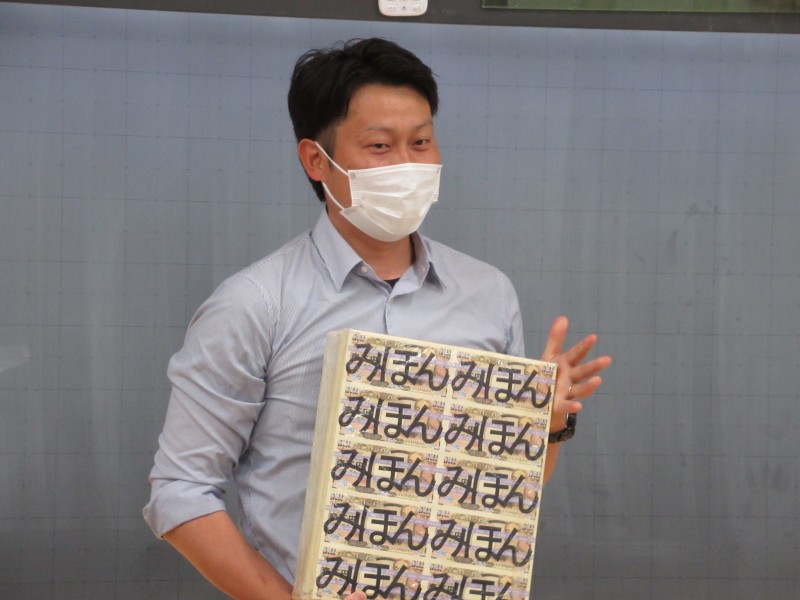 みほん みほん
みほん みほん
みほん みほん
みほん みほん
みほん みほん